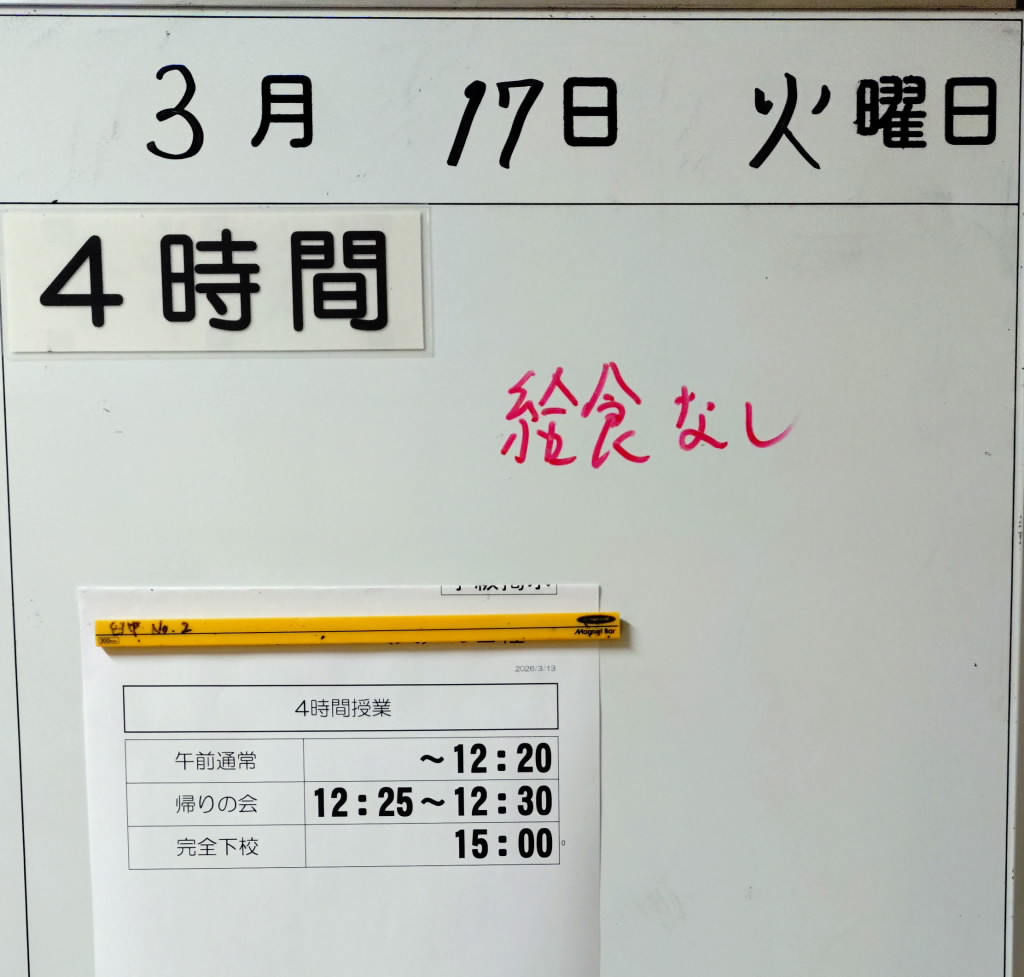 3月 17日 火曜日
4時間
給食なし
台中 No.2
300mm
Magnet Bar
2026/3/13
4時間授業
午前通常 ～12：20
帰りの会 12：25～12：30
完全下校 15：00
0